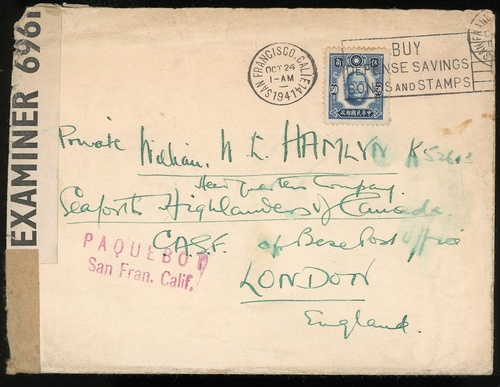 EXAMINER 6961
SAN FRANCISCO, CALIF.
OCT 24
1-AM
1941
BUY
DEFENSE SAVINGS
BONDS AND STAMPS
中華民國郵政
Private William. W. E. HAMLYN K52613
Headquarters Company.
Seaforth Highlanders of Canada.
C.A.S.F. of Base Post Office
LONDON
England.
PAQUEBOT
San Fran. Calif,